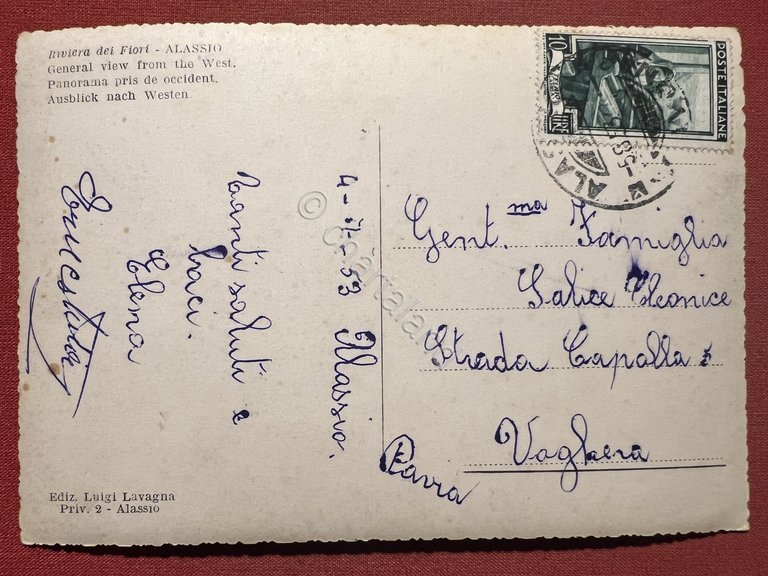 Riviera dei Fiori - ALASSIO
General view from the West.
Panorama pris de occident.
Ausblick nach Westen
10
LIRE
POSTE ITALIANE
4 - - 53 Alassio.
Tanti saluti e
baci.
Elena
Gent.ma Famiglia
Salice Cleonice
Strada Capalla 5
Voghera
Pavia
Ediz. Luigi Lavagna
Priv. 2 - Alassio
© Cartalan